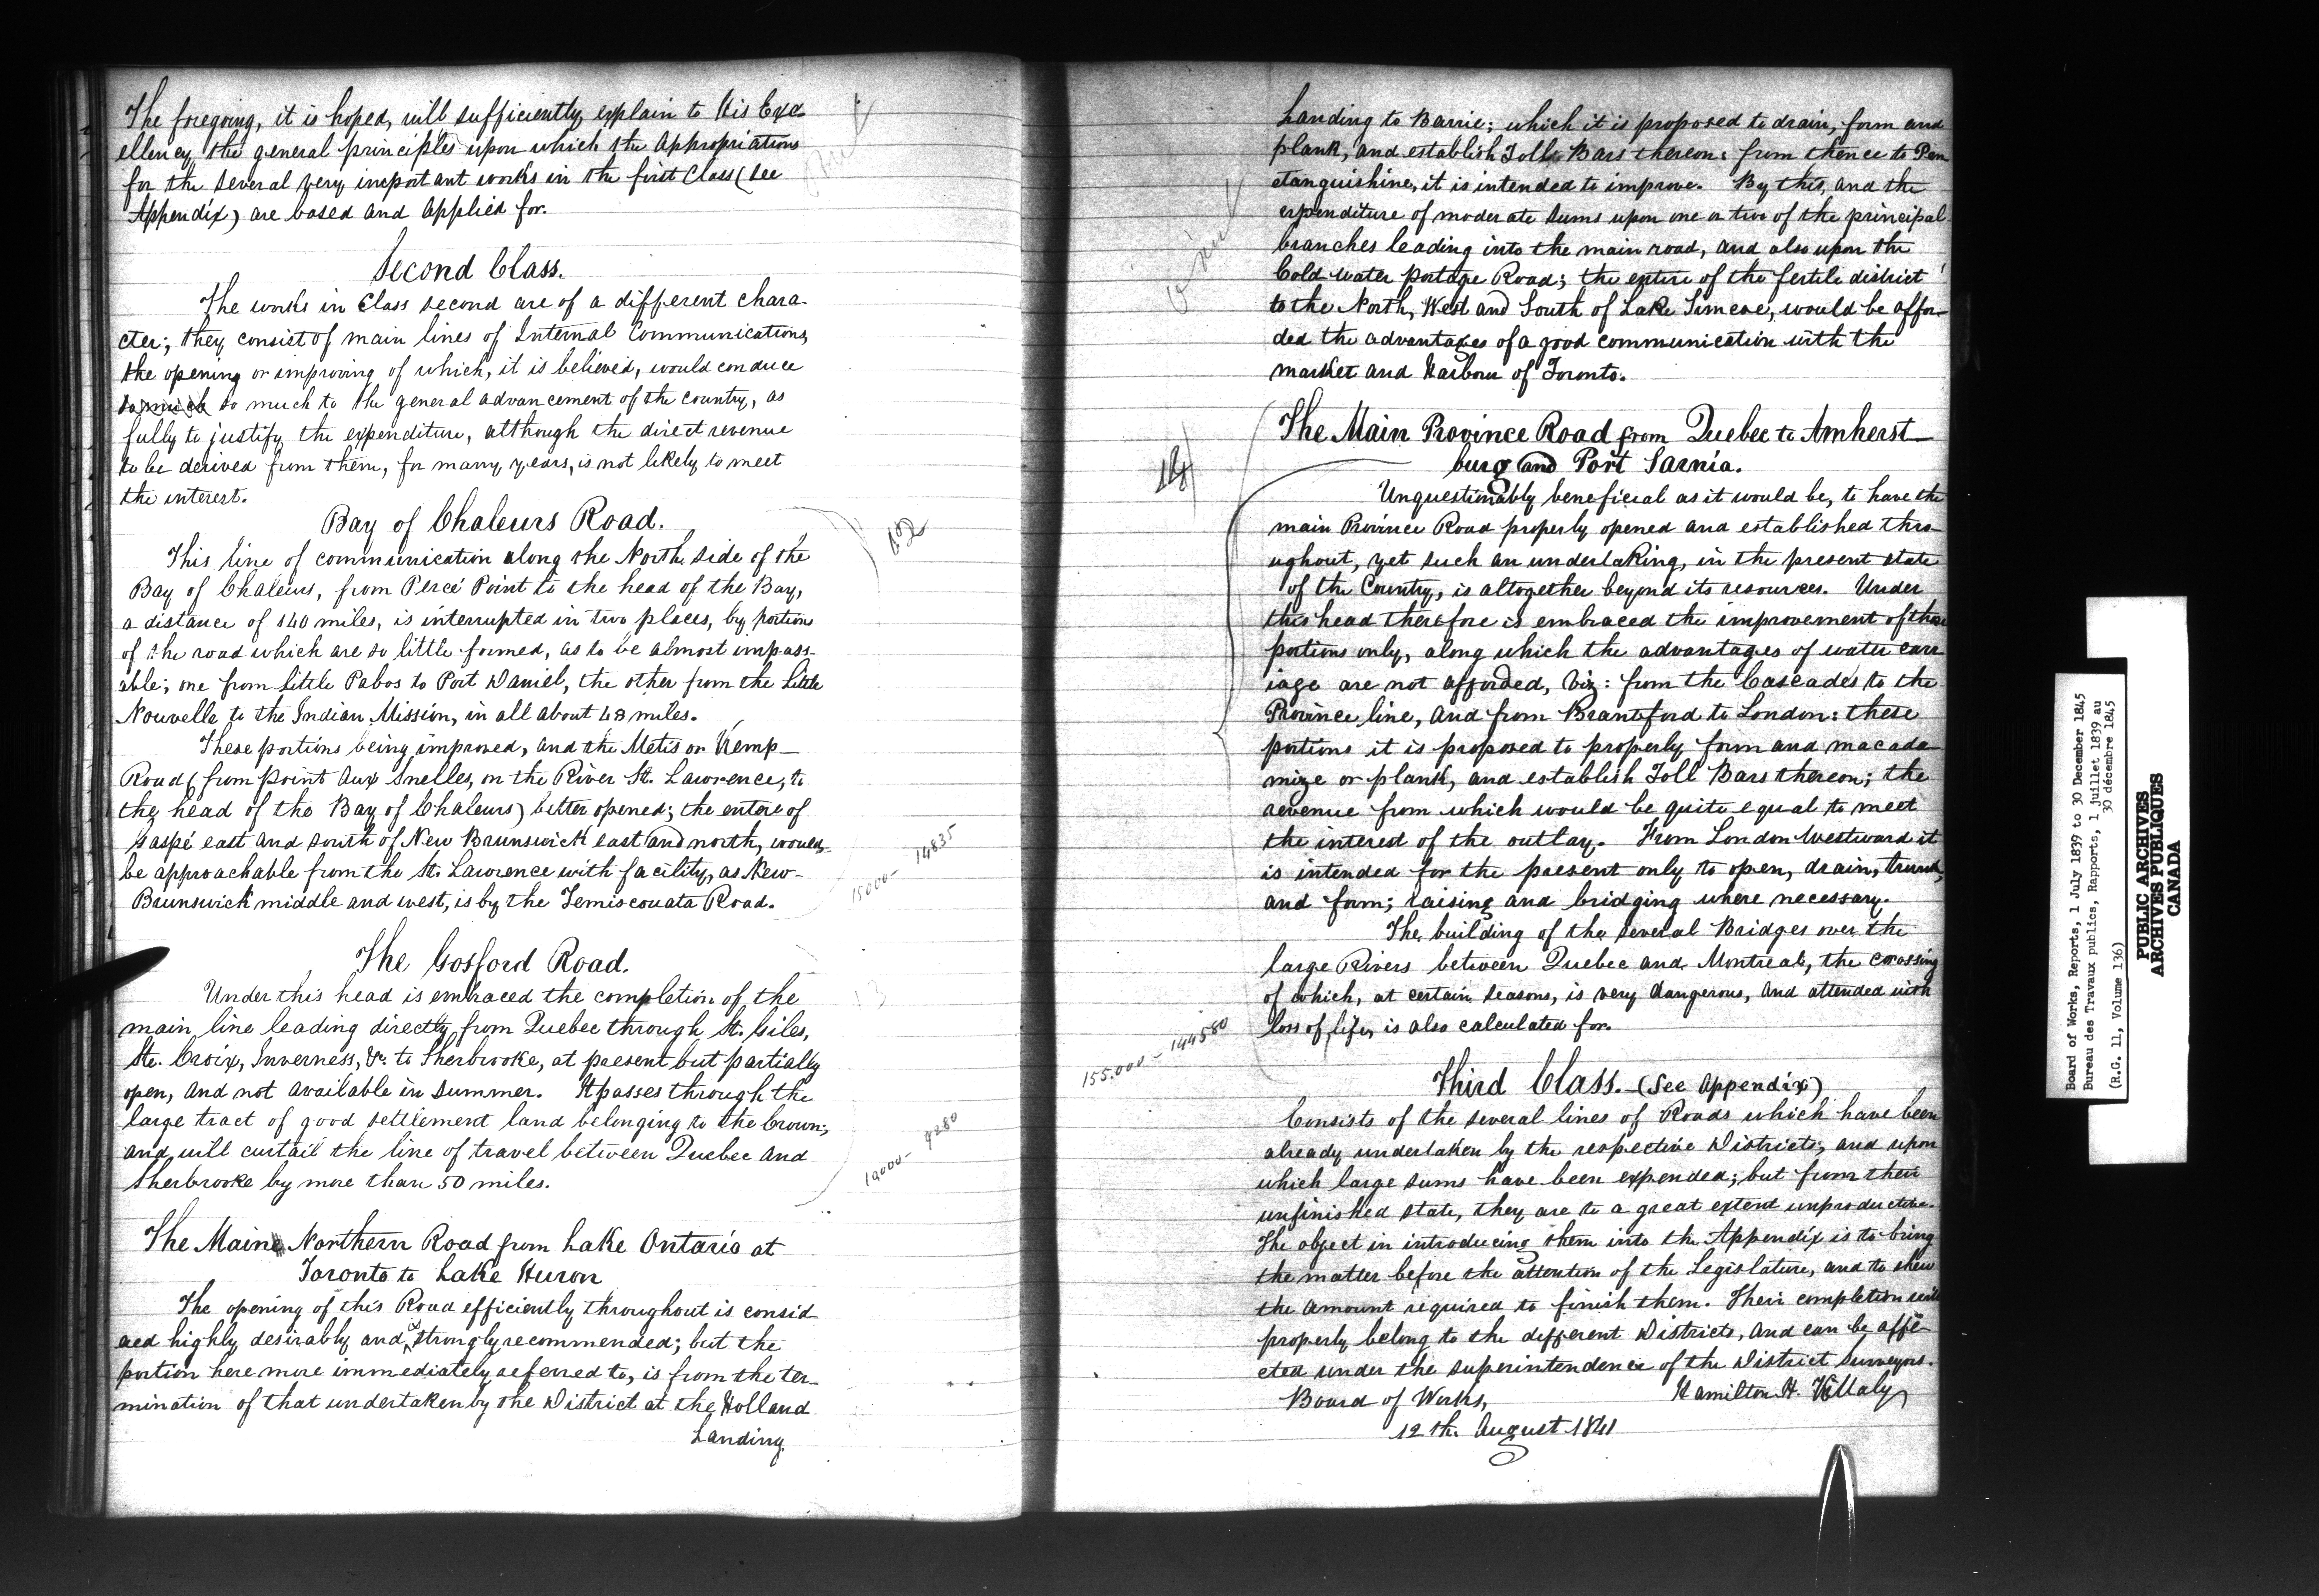 The foregoing, it is hoped, will sufficiently explain to His Exc-
ellency the general principles upon which the Appropriations
for the several very important works in the first Class (see
Appendix) are based and applied for.
Second Class.
The works in Class second are of a different chara-
cter; they consist of main lines of Internal Communications,
the opening or improving of which, it is believed, would conduce
so much so much to the general advancement of the country, as
fully to justify the expenditure, although the direct revenue
to be derived from them, for many years, is not likely to meet
the interest.
Bay of Chaleurs Road.
12
This line of communication along the North side of the
Bay of Chaleurs, from Percé Point to the head of the Bay,
a distance of 140 miles, is interrupted in two places, by portions
of the road which are so little formed, as to be almost impass-
able; one from Little Pabos to Port Daniel, the other from the Little
Nouvelle to the Indian Mission, in all about 48 miles.
These portions being improved, and the Metis or Kemp-
Road (from point Aux Snelles, on the River St. Lawrence, to
the head of the Bay of Chaleurs) better opened; the entire of
Gaspé east and south of New Brunswick east and north, would-
be approachable from the St. Lawrence with facility, as New-
Brunswick middle and west, is by the Temiscouata Road.
15000- 14835
The Gosford Road.
13
Under this head is embraced the completion of the
main line leading directly from Quebec through St. Giles,
Ste. Croix, Inverness, &c. to Sherbrooke, at present but partially
open, and not available in summer. It passes through the
large tract of good settlement land belonging to the Crown;
and will curtail the line of travel between Quebec and
Sherbrooke by more than 50 miles.
10000- 9280
The Maine Northern Road from Lake Ontario at
Toronto to Lake Huron
The opening of this Road efficiently throughout is consid
ered highly desirably and is strongly recommended; but the
portion here more immediately referred to, is from the ter-
mination of that undertaken by the District at the Holland
Landing.
Landing to Barrie; which it is proposed to drain, form and
plank, and establish Toll Bars thereon: from thence to Pen
etanguishine, it is intended to improve. By this, and the
expenditure of moderate sums upon one or two of the principal
branches leading into the main road, and also upon the
Cold water portage Road; the entire of the fertile district
to the North, West and South of Lake Simcoe, would be affor-
ded the advantages of a good communication with the
market and Harbour of Toronto.
The Main Province Road from Quebec to Amherst-
burg and Port Sarnia.
14
Unquestionably beneficial as it would be, to have the
main Province Road properly opened and established thro-
ughout, yet such an undertaking, in the present state
of the Country, is altogether beyond its resources. Under
this head therefore is embraced the improvement of those
portions only, along which the advantages of water carr
iage are not afforded, viz: from the Cascades to the
Province line, and from Brantford to London: these
portions it is proposed to properly form and macada-
mize or plank, and establish Toll Bars thereon; the
revenue from which would be quite equal to meet
the interest of the outlay. From London Westward it
is intended for the present only to open, drain,
and form; raising and bridging where necessary.
The building of the several Bridges over the
large Rivers between Quebec and Montreal, the crossing
of which, at certain seasons, is very dangerous, and attended with
loss of life, is also calculated for.
155.000- 144580
Third Class. - (See Appendix)
Consists of the several lines of Roads which have been
already undertaken by the respective Districts, and upon
which large sums have been expended; but from their
unfinished state, they are to a great extent unproductive.
The object in introducing them into the Appendix is to bring
the matter before the attention of the Legislature, and to shew
the amount required to finish them. Their completion will
properly belong to the different Districts, and can be affe-
cted under the superintendence of the District Surveyors.
Hamilton H. Killaly
Board of Works,
12th. August 1841
Board of Works, Reports, 1 July 1839 to 30 December 1845
Bureau des Travaux publics, Rapports, 1 juillet 1839 au
30 décembre 1845
(R.G. 11, Volume 136)
PUBLIC ARCHIVES
ARCHIVES PUBLIQUES
CANADA